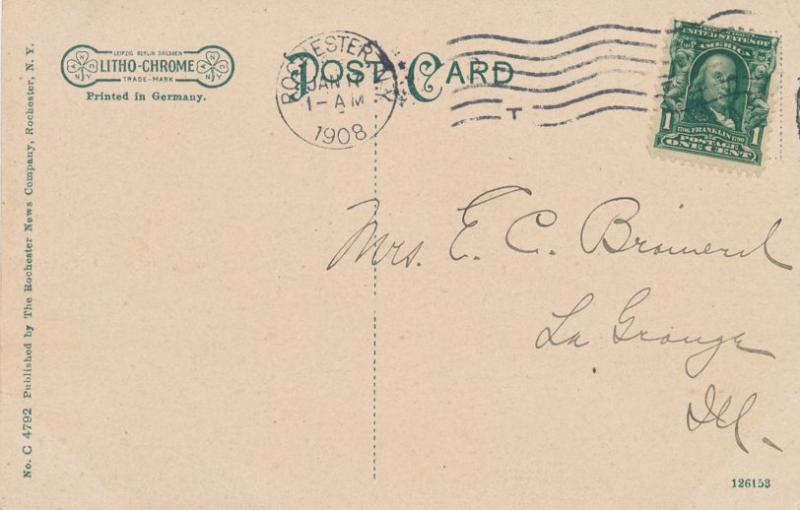 LEIPZIG BERLIN DRESDEN
LITHO-CHROME
TRADE-MARK
Printed in Germany.
POST CARD
ROCHESTER, N.Y.
JAN
1-AM
1908
T
UNITED STATES OF AMERICA
1 1
1706 FRANKLIN 1790
POSTAGE
ONE CENT
Mrs. E. C. Brainerd
La Grange
Ill.
No. C 4792 Published by The Rochester News Company, Rochester, N. Y.
126153